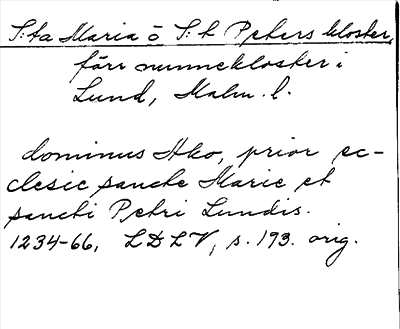 S:ta Maria o S:t Peters kloster,
förr nunnekloster i
Lund, Malm. l.
dominus Ako, prior ec-
clesie sancte Marie et
sancti Petri Lundis.
1234-66, LDLV, s. 193. orig.